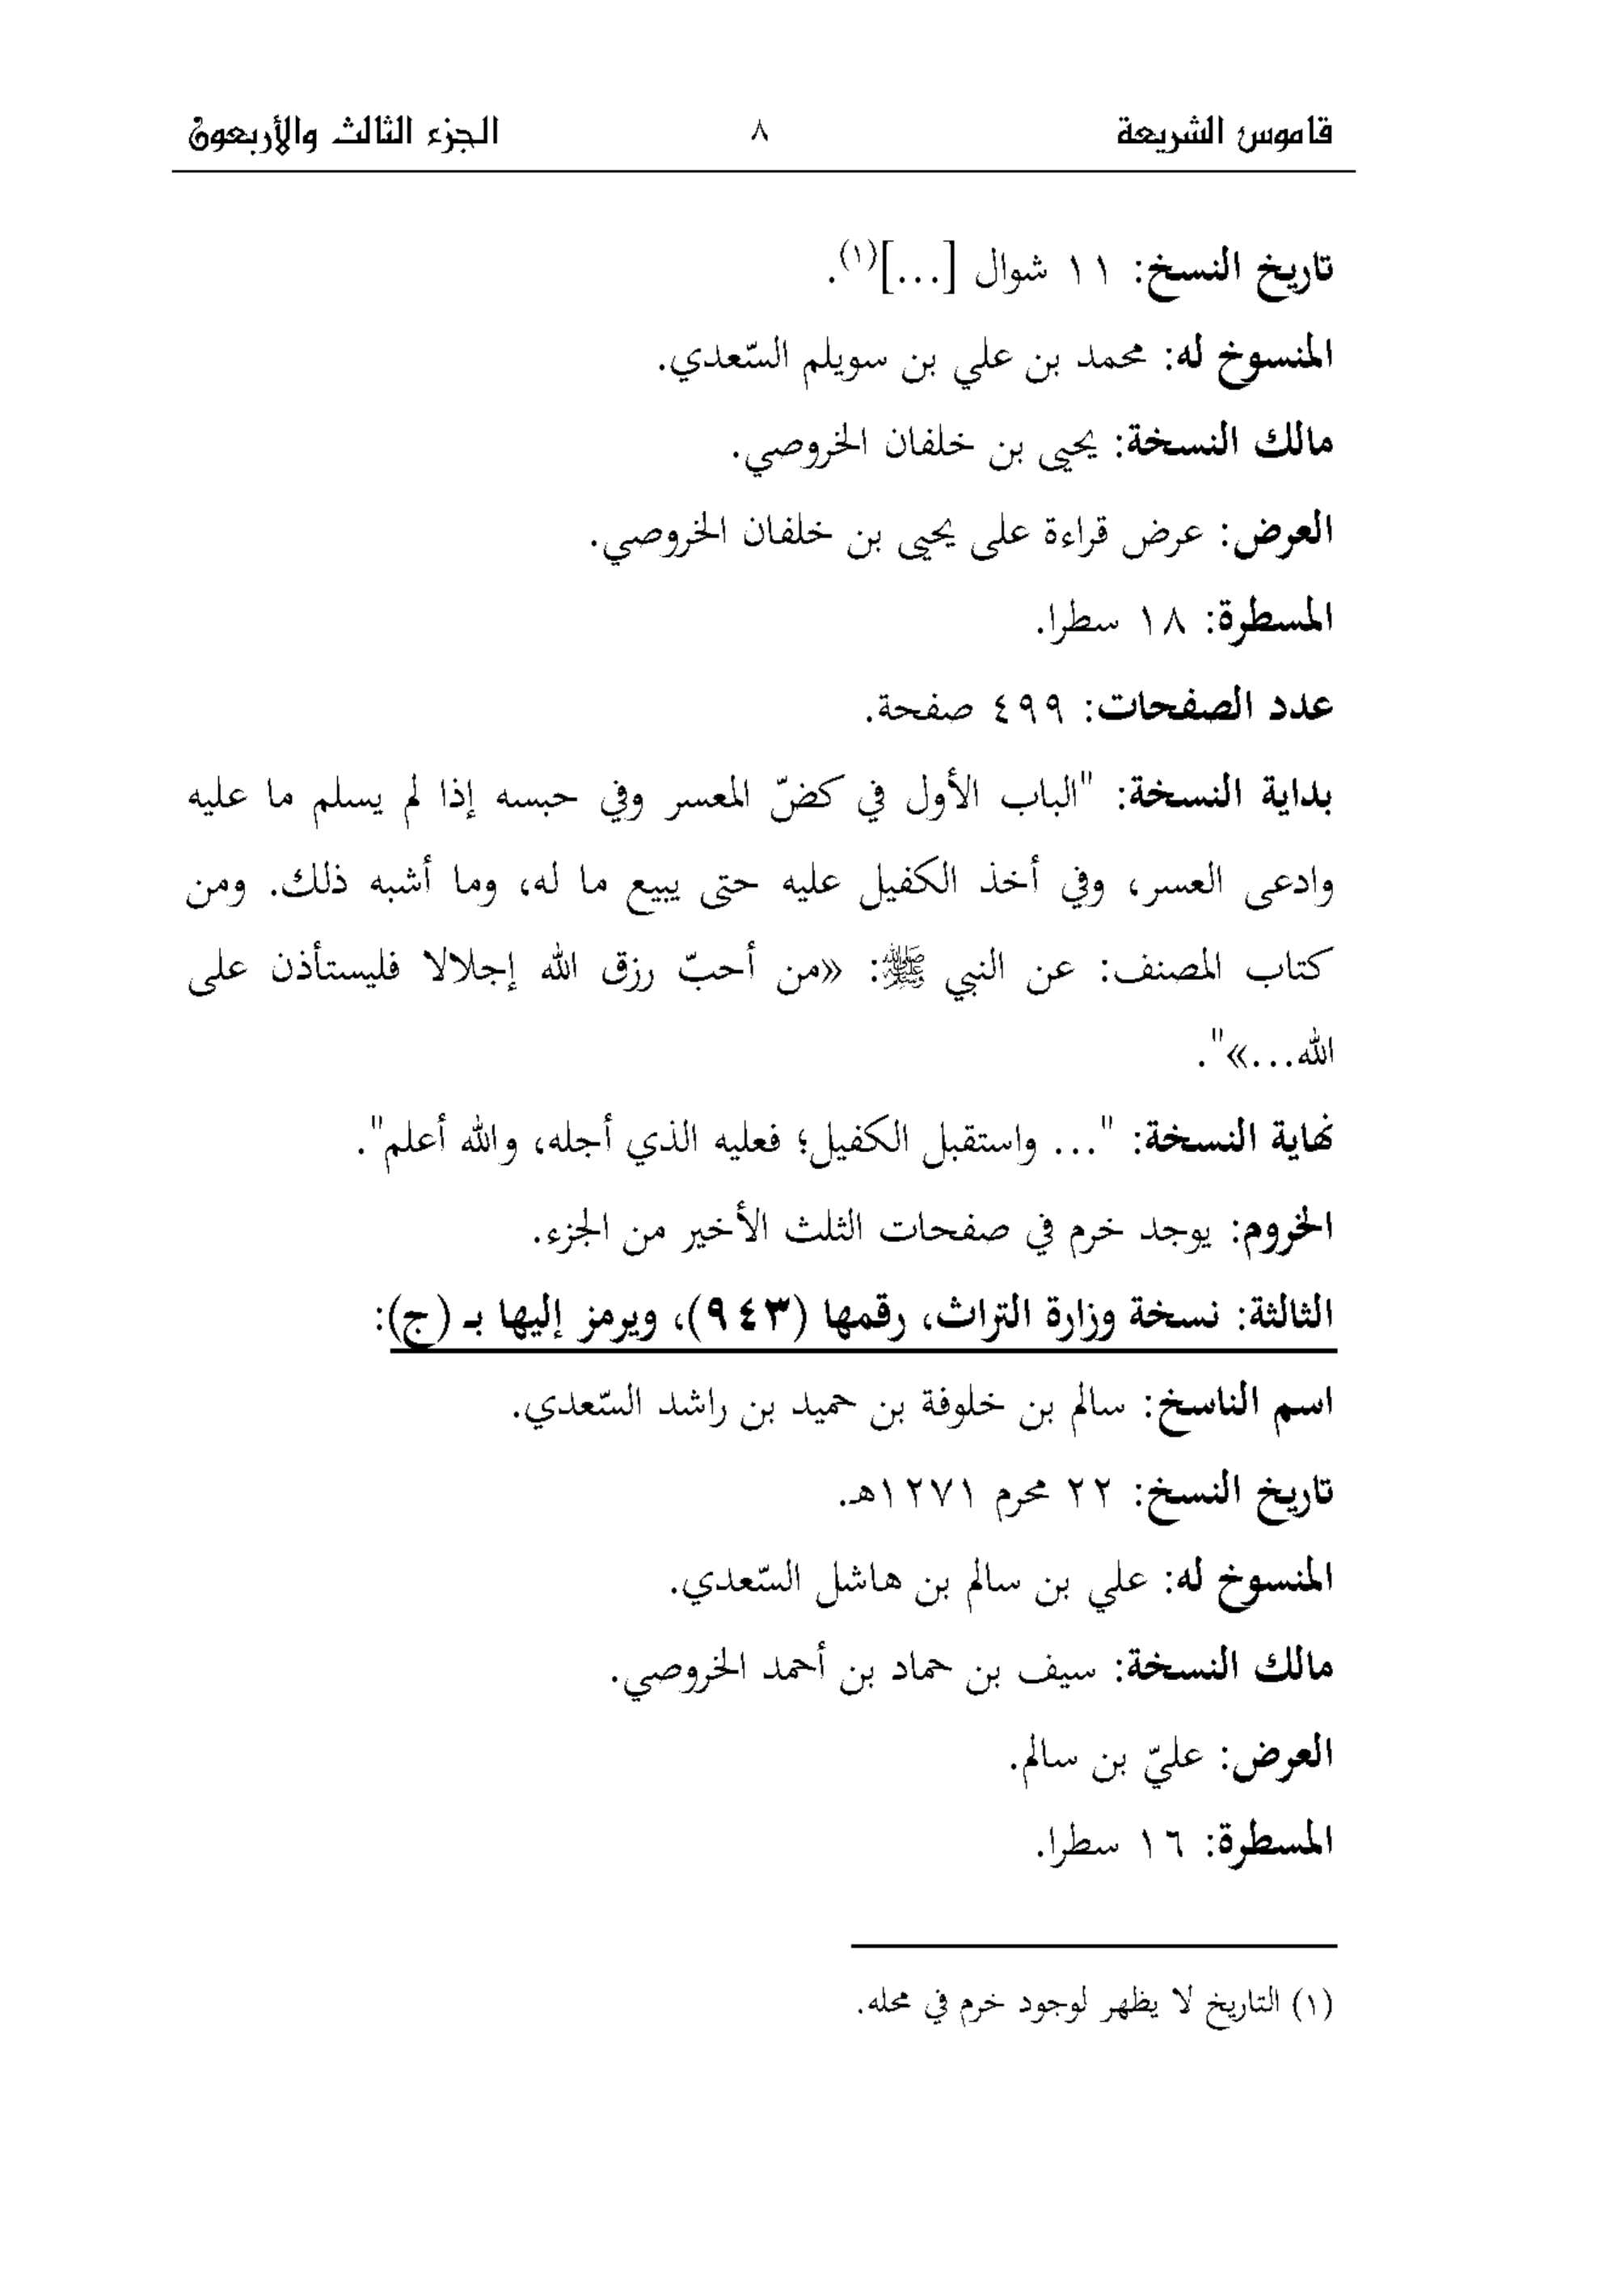 قاموس الشريعة ٨ الجزء الثالث والأربعون
تاريخ النسخ: ١١ شوال [...](١).
المنسوخ له: محمد بن علي بن سويلم السّعدي.
مالك النسخة: يحيى بن خلفان الخروصي.
العرض: عرض قراءة على يحيى بن خلفان الخروصي.
المسطرة: ١٨ سطرا.
عدد الصفحات: ٤٩٩ صفحة.
بداية النسخة: "الباب الأول في كضّ المعسر وفي حبسه إذا لم يسلم ما عليه
وادعى العسر، وفي أخذ الكفيل عليه حتى يبيع ما له، وما أشبه ذلك. ومن
كتاب المصنف: عن النبي ﷺ: «من أحبّ رزق الله إجلالا فليستأذن على
الله...»".
نهاية النسخة: "... واستقبل الكفيل؛ فعليه الذي أجله، والله أعلم".
الخروم: يوجد خرم في صفحات الثلث الأخير من الجزء.
الثالثة: نسخة وزارة التراث، رقمها (٩٤٣)، ويرمز إليها بـ (ج):
اسم الناسخ: سالم بن خلوفة بن حميد بن راشد السّعدي.
تاريخ النسخ: ٢٢ محرم ١٢٧١هـ.
المنسوخ له: علي بن سالم بن هاشل السّعدي.
مالك النسخة: سيف بن حماد بن أحمد الخروصي.
العرض: عليّ بن سالم.
المسطرة: ١٦ سطرا.
(١) التاريخ لا يظهر لوجود خرم في محله.